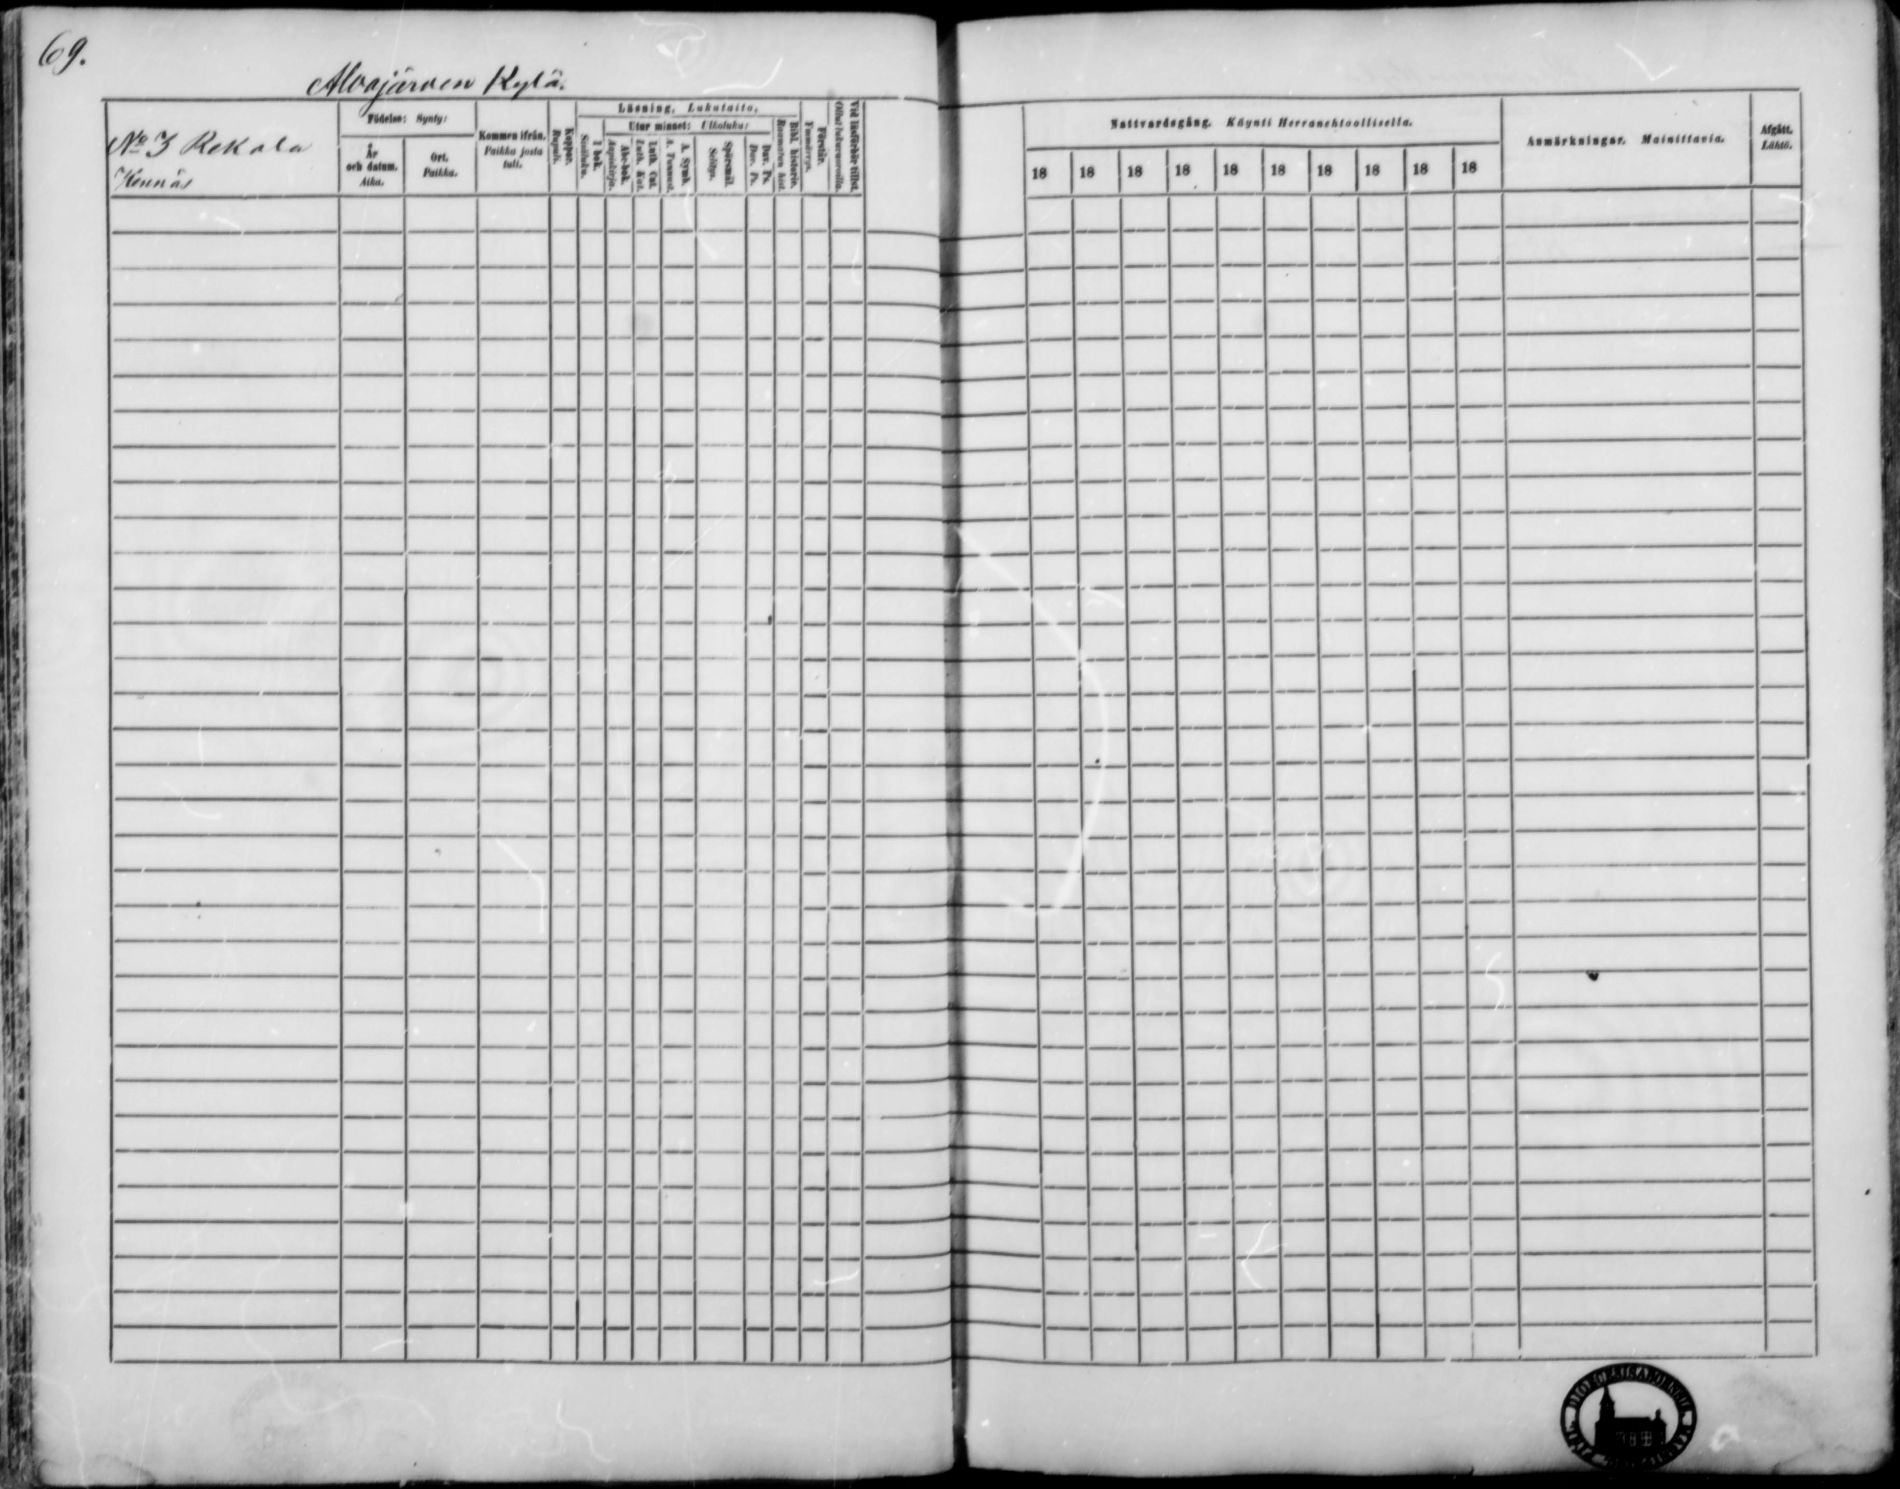 69.
Alvajärven Kylä.
No 3 Rekola
Kennäs
Födelse: Synty:
År och datum. Aika.
Ort. Paikka.
Kommen ifrån. Paikka josta tuli.
Koppor. Rupuli.
Läsning, Lukutaito,
I bok. Sisäluku.
Utur minnet: Ulkoluku:
Abc-bok. Aapiskirja.
Luth. Cat. Luth. Kat.
A. Symb. A. Tunnust.
Spörsmål. Selitys.
Dav. Ps. Dav. Ps.
Bibl. historie. Raamatun hist.
Förstår. Ymmärrys.
Vid läsförhör tillst. Ollut lukuvuoroilla.
Nattvardsgång. Käynti Herranehtoollisella.
18 18 18 18 18 18 18 18 18 18
Anmärkningar. Mainittavia.
Afgått. Lähtö.